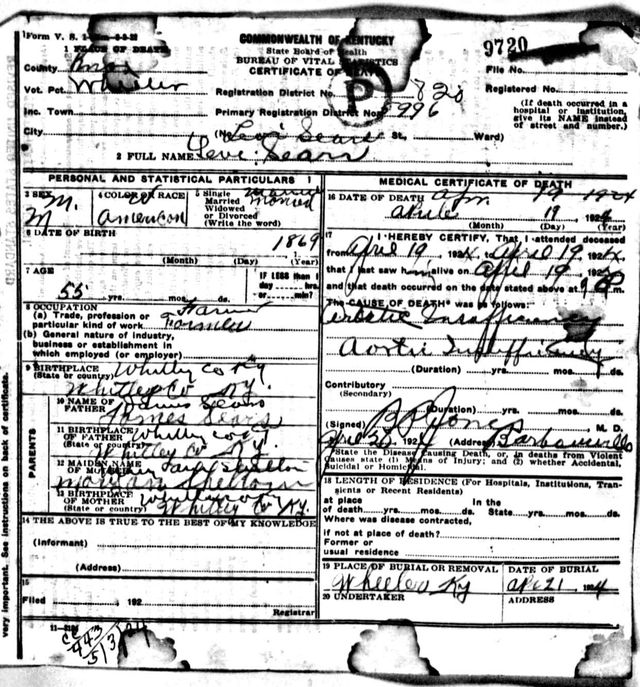 Form V. S.
COMMONWEALTH OF KENTUCKY
State Board of Health
BUREAU OF VITAL STATISTICS
CERTIFICATE OF DEATH
9720
File No.
1 PLACE OF DEATH
County Knox
Vot. Pct. Wheeler
Registration District No. 820
Registered No.
Inc. Town
Primary Registration District No. 5996
(If death occurred in a
hospital or institution,
give its NAME instead
of street and number.)
City
(No. Levi Sears St., Ward)
2 FULL NAME Levi Sears
PERSONAL AND STATISTICAL PARTICULARS
3 SEX
M.
M
4 COLOR OR RACE
American
5 Single
Married
Widowed
or Divorced
(Write the word)
Married
6 DATE OF BIRTH
1869
(Month) (Day) (Year)
7 AGE
55 yrs. mos. ds.
IF LESS than 1
day hrs.
or min?
8 OCCUPATION
(a) Trade, profession or
particular kind of work Farmer
Farmer
(b) General nature of industry,
business or establishment in
which employed (or employer)
9 BIRTHPLACE
(State or country)
Whitley Co Ky
Whitley Co Ky.
PARENTS
10 NAME OF
FATHER
James Sears
James Sears
11 BIRTHPLACE
OF FATHER
(State or country)
Whitley Co Ky
Whitley Co Ky.
12 MAIDEN NAME
OF MOTHER
Shelton
13 BIRTHPLACE
OF MOTHER
(State or country)
Whitley Co Ky.
14 THE ABOVE IS TRUE TO THE BEST OF MY KNOWLEDGE
(Informant)
(Address)
15
Filed , 192
Registrar
MEDICAL CERTIFICATE OF DEATH
16 DATE OF DEATH
19 1924
19 , 1924
(Month) (Day) (Year)
17 I HEREBY CERTIFY, That I attended deceased
from April 19 , 1924, to April 19 , 1924,
that I last saw him alive on April 19 , 192
and that death occurred on the date stated above at
The CAUSE OF DEATH* was as follows:
Aortic Insufficiency
Aortic Insufficiency
(Duration) yrs. mos. ds.
Contributory
(Secondary)
(Duration) yrs. mos. ds.
(Signed) Jones M. D.
192 (Address) Barbourville
*State the Disease Causing Death, or, in deaths from Violent
Causes state (1) Means of Injury; and (2) whether Accidental,
Suicidal or Homicidal.
18 LENGTH OF RESIDENCE (For Hospitals, Institutions, Transients
or Recent Residents)
at place
of death yrs. mos. ds.
In the
State yrs. mos. ds.
Where was disease contracted,
if not at place of death?
Former or
usual residence
19 PLACE OF BURIAL OR REMOVAL
Wheeler Ky
DATE OF BURIAL
21 1924
20 UNDERTAKER
ADDRESS
very important. See instructions on back of certificate.
P